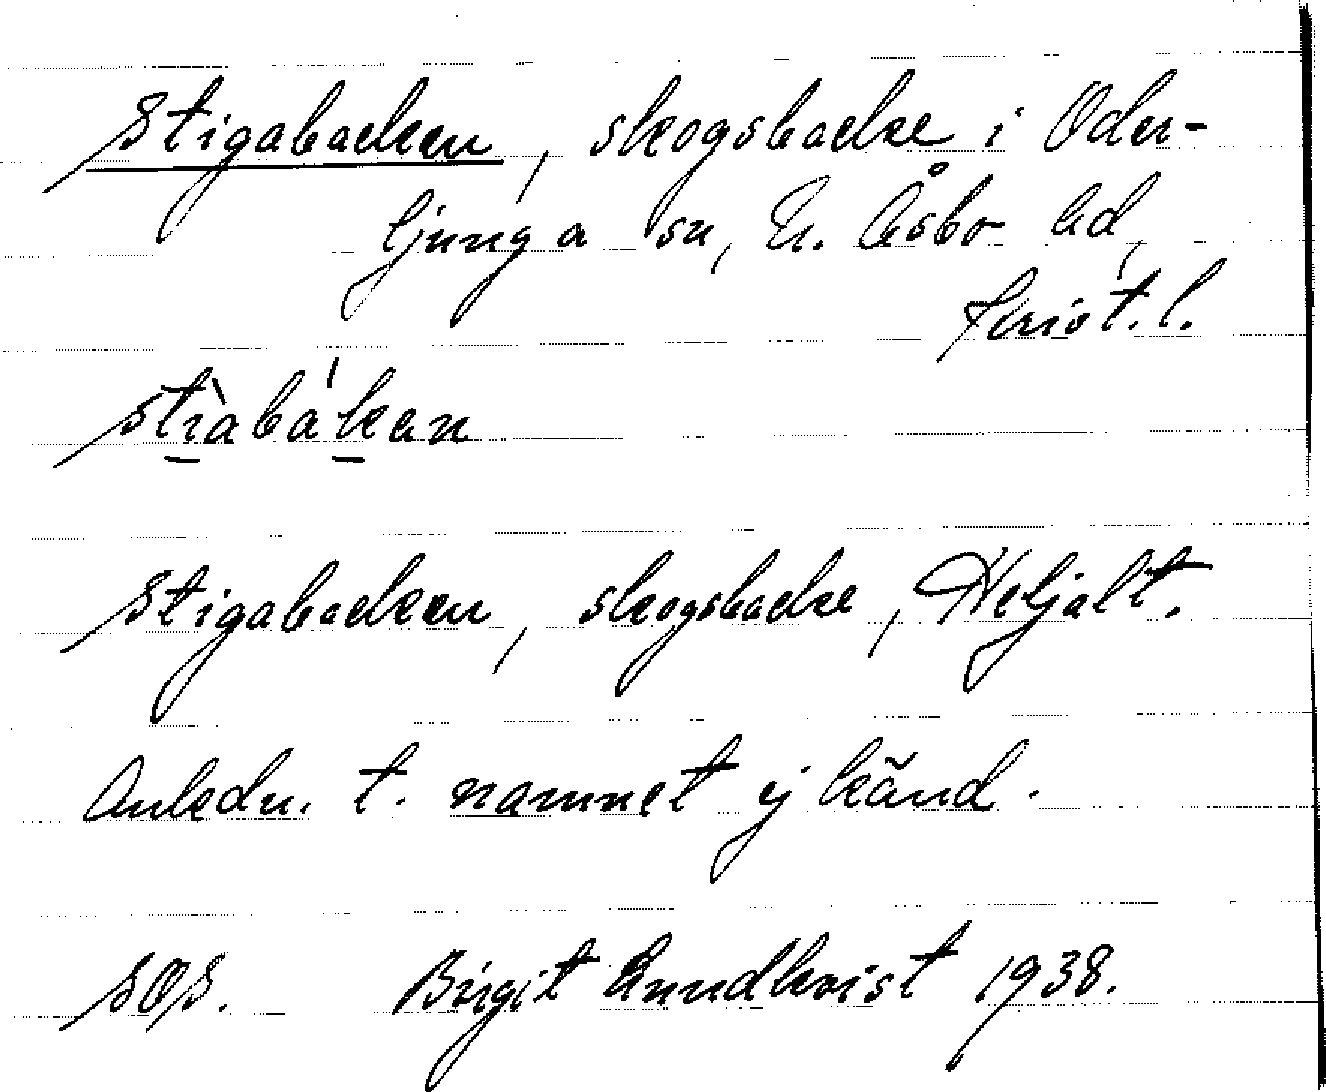 Stigabacken, skogsbacke i Oder-
ljunga sn, N. Åsbo hd,
Krist. l.
stìabákan
Stigabacken, skogsbacke, Heljalt.
Anledn. t. namnet ej känd.
SOS. Birgit Lundkvist 1938.